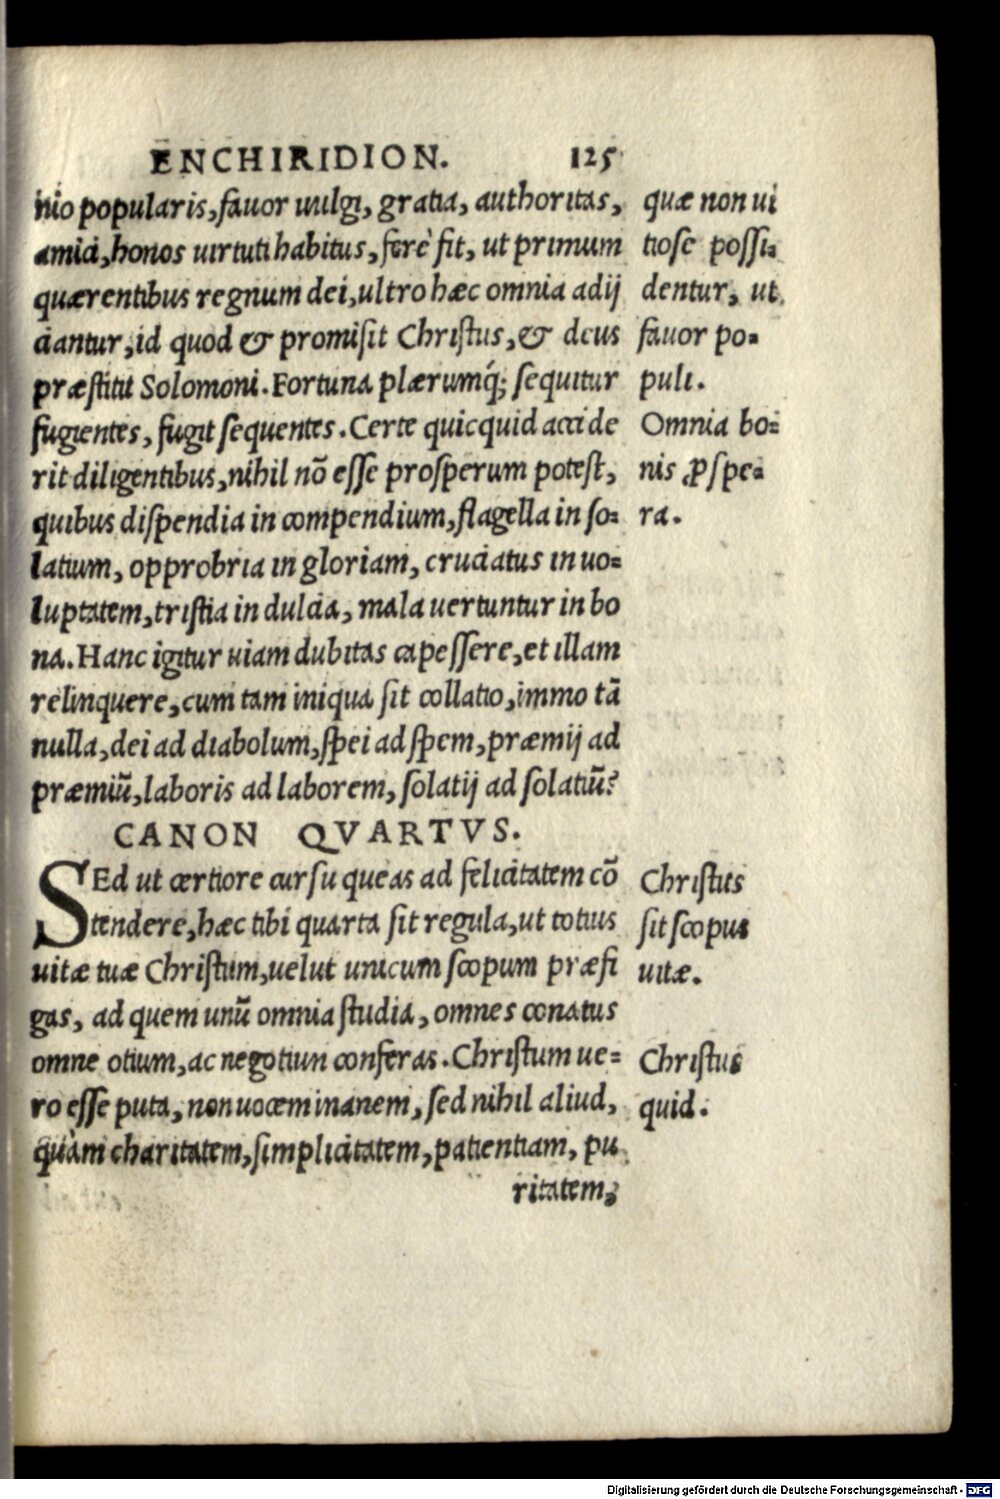 ENCHIRIDION. 125
nio popularis, fauor uulgi, gratia, authoritas,
amici, honos uirtuti habitus, ferè fit, ut primum
quærentibus regnum dei, ultro hæc omnia adij
ciantur, id quod & promiſit Chriſtus, & deus
præſtitit Solomoni. Fortuna plærumq́; ſequitur
fugientes, fugit ſequentes. Certe quicquid accide
rit diligentibus, nihil nõ eſſe proſperum poteſt,
quibus diſpendia in compendium, flagella in ſo-
latium, opprobria in gloriam, cruciatus in uo-
luptatem, triſtia in dulcia, mala uertuntur in bo
na. Hanc igitur uiam dubitas capeſſere, et illam
relinquere, cum tam iniqua ſit collatio, immo tã
nulla, dei ad diabolum, ſpei ad ſpem, præmij ad
præmiũ, laboris ad laborem, ſolatij ad ſolatiũ?
CANON QVARTVS.
SEd ut certiore curſu queas ad felicitatem cõ
tendere, hæc tibi quarta ſit regula, ut totius
uitæ tuæ Chriſtum, uelut unicum ſcopum præfi
gas, ad quem unũ omnia ſtudia, omnes conatus
omne otium, ac negotiun conferas. Chriſtum ue-
ro eſſe puta, non uocem inanem, ſed nihil aliud,
quàm charitatem, ſimplicitatem, patientiam, pu
ritatem,
quæ non ui
tioſe poſſi-
dentur, ut
fauor po-
puli.
Omnia bo-
nis ꝓſpe-
ra.
Chriſtus
ſit ſcopus
uitæ.
Chriſtus
quid.
Digitalisierung gefördert durch die Deutsche Forschungsgemeinschaft - DFG